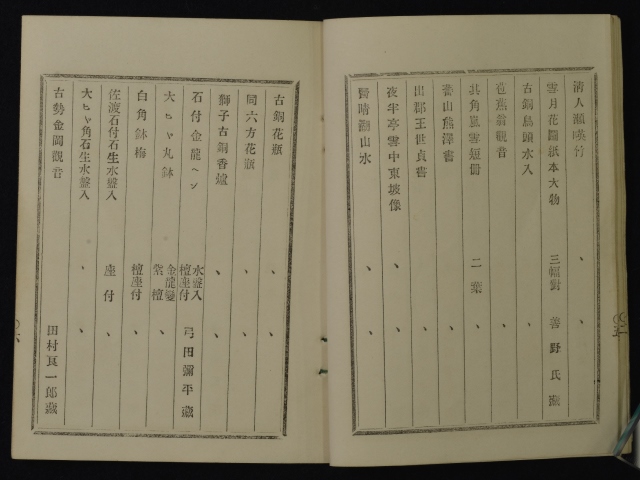 清人顧暎竹 、 、
雪月花圖紙本大物 三幅對 善野氏蔵
古銅鳥頭水入 、 、
芭蕉翁觀音 、 、
其角嵐雪短冊 二葉 、
蕃山熊澤書 、 、
王世貞書 、 、
夜半亭雪中東坡像 、 、
山水 、 、
古銅花瓶 、 、
同六方花瓶 、 、
獅子古銅香爐 、 、
石付金龍ヘン 水盤入 檀座付 弓田彌平蔵
大ヒヤ丸鉢 金龍變 紫檀 、
白角鉢梅 檀座付 、
佐渡石付石生水盤入 座付 、
大ヒヤ角石生水盤入 、 、
古勢金岡觀音 、 田村良一郎蔵